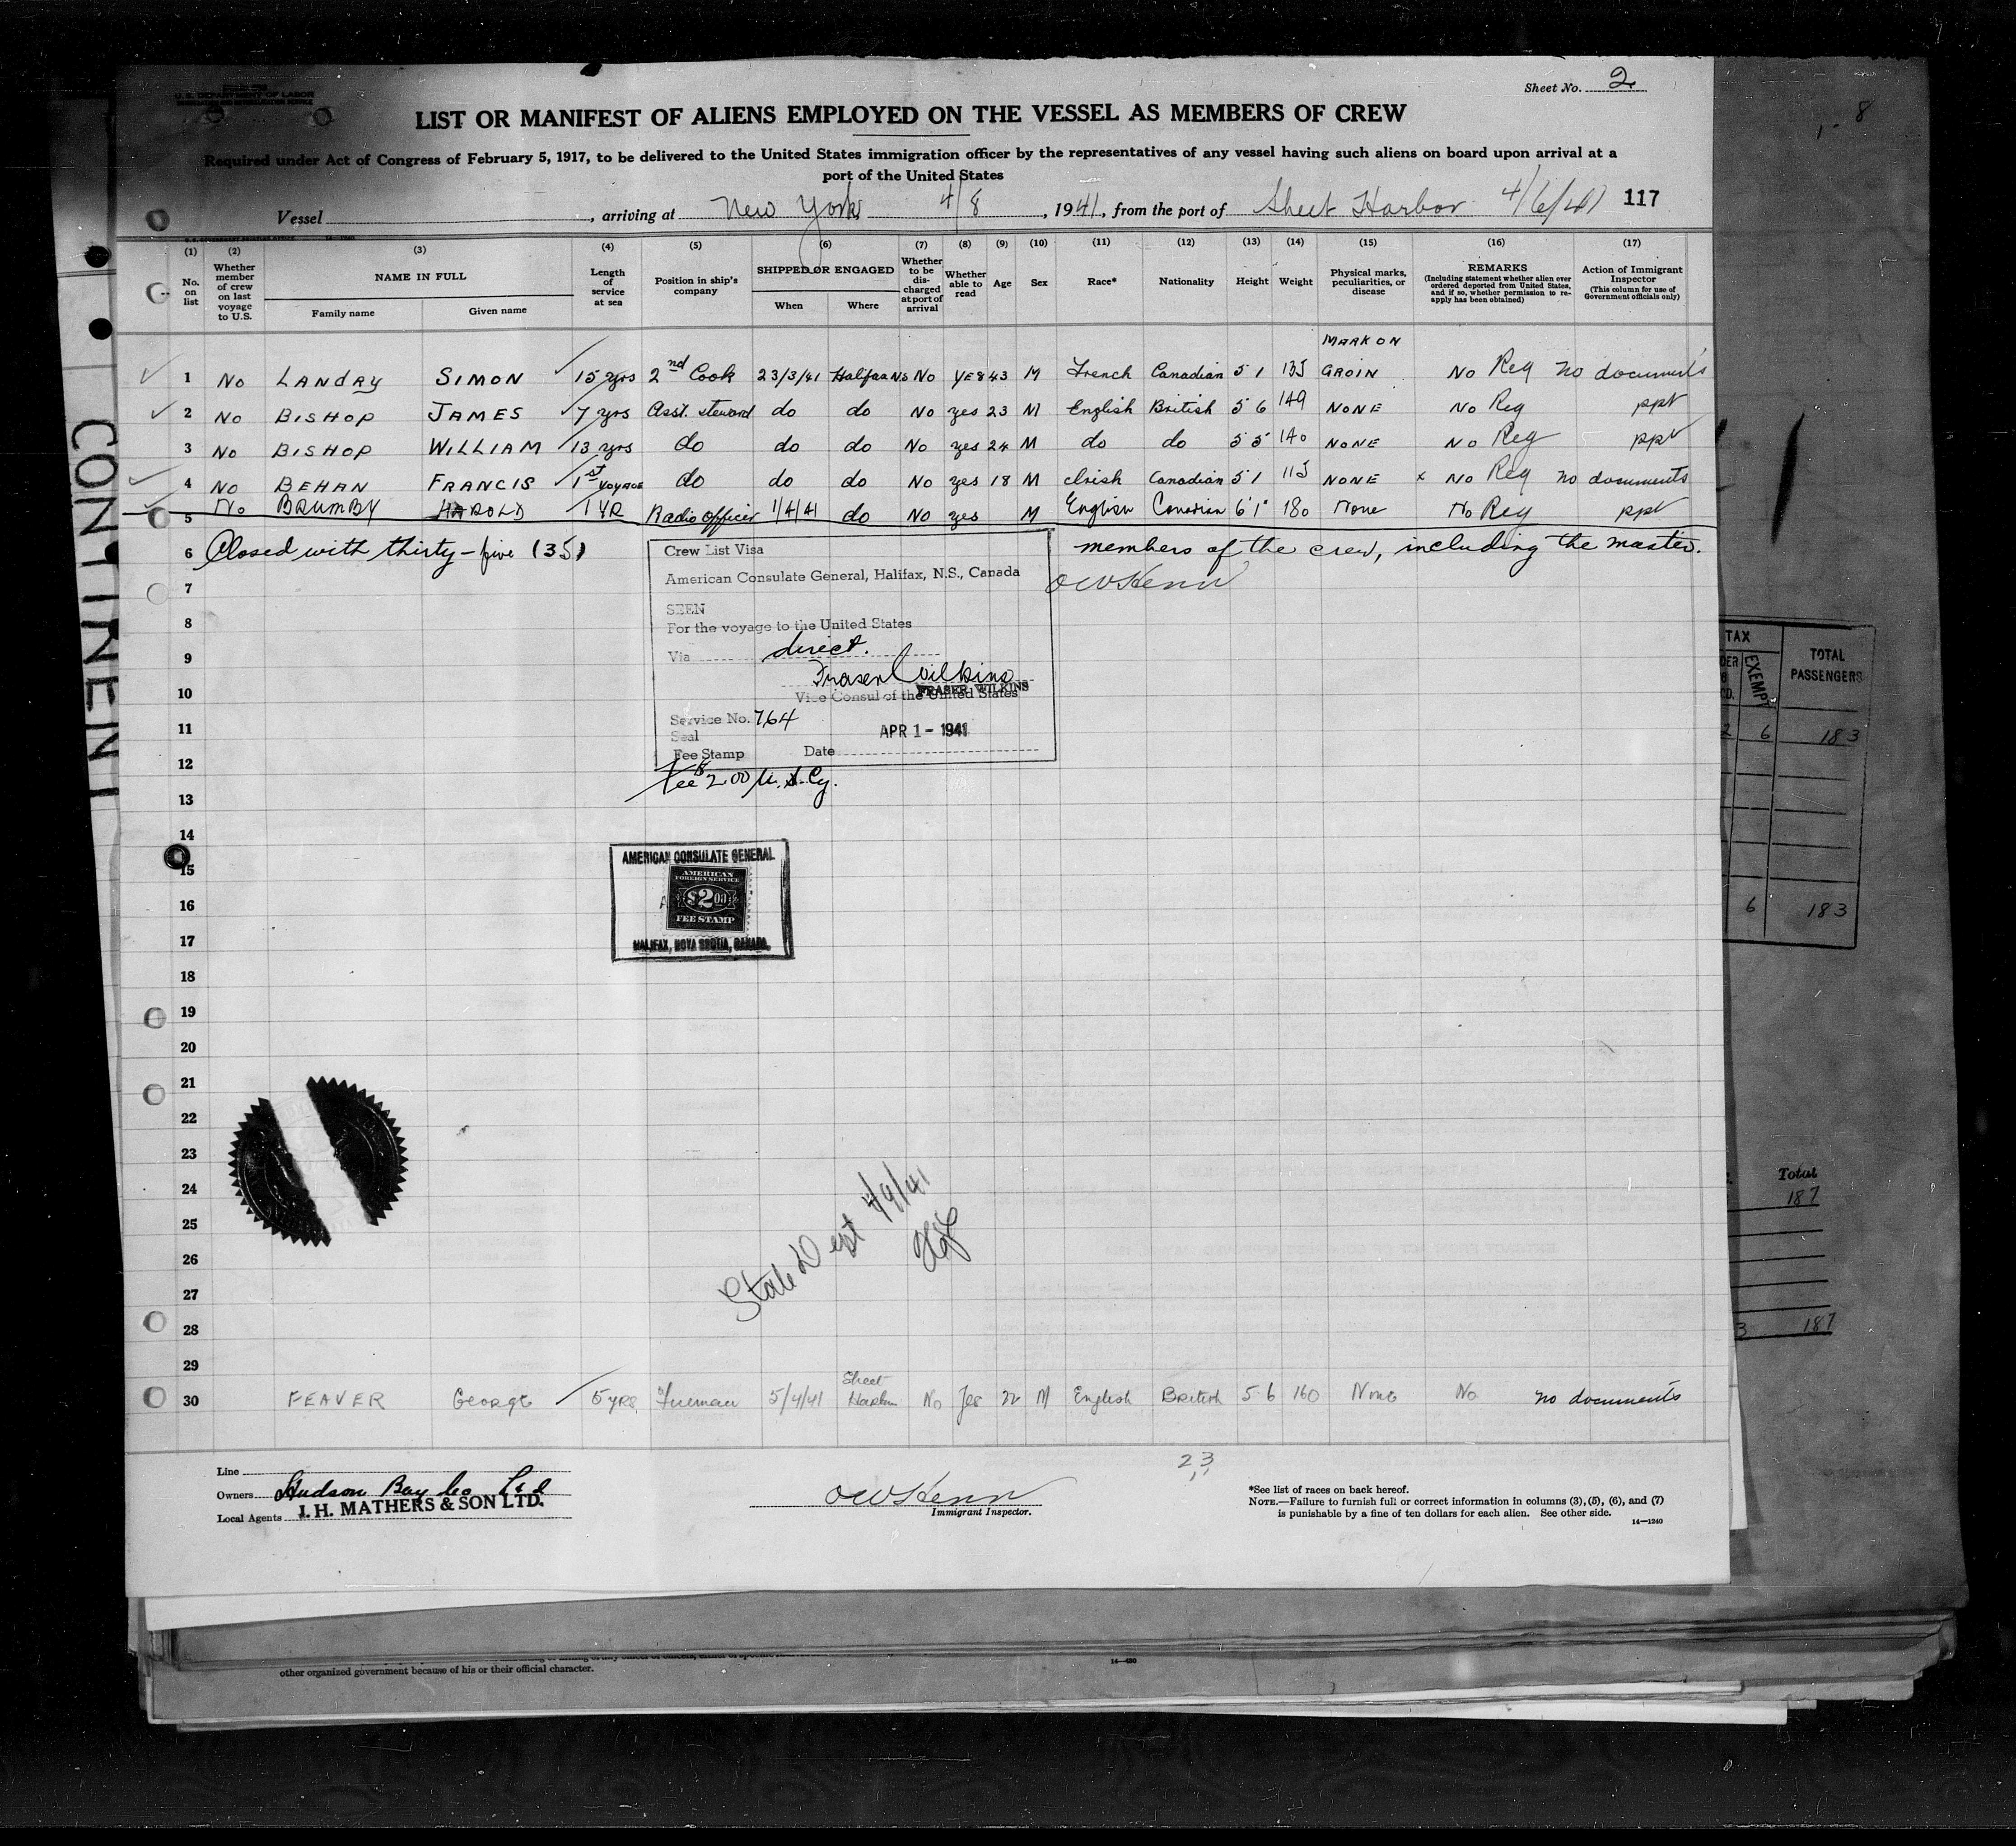 Sheet No. 2
U. S. DEPARTMENT OF LABOR
LIST OR MANIFEST OF ALIENS EMPLOYED ON THE VESSEL AS MEMBERS OF CREW
Required under Act of Congress of February 5, 1917, to be delivered to the United States immigration officer by the representatives of any vessel having such aliens on board upon arrival at a
port of the United States
Vessel , arriving at New York 4/8 , 1941, from the port of Sheet Harbor 4/6/41 117
(1) (2) (3) (4) (5) (6) (7) (8) (9) (10) (11) (12) (13) (14) (15) (16) (17)
No. on list
Whether member of crew on last voyage to U.S.
NAME IN FULL
Family name Given name
Length of service at sea
Position in ship's company
SHIPPED OR ENGAGED
When Where
Whether to be discharged at port of arrival
Whether able to read
Age
Sex
Race*
Nationality
Height
Weight
Physical marks, peculiarities, or disease
REMARKS
(Including statement whether alien ever ordered deported from United States, and if so, whether permission to reapply has been obtained)
Action of Immigrant Inspector
(This column for use of Government officials only)
MARK ON
1 No LANDRY SIMON 15 yrs 2nd Cook 23/3/41 Halifax NS No YES 43 M French Canadian 5 1 135 GROIN No Reg No documents
2 No BISHOP JAMES 7 yrs Asst. steward do do No yes 23 M English British 5 6 149 NONE No Reg ppt
3 No BISHOP WILLIAM 13 yrs do do do No yes 24 M do do 5 5 140 NONE No Reg ppt
4 No BEHAN FRANCIS 1st VOYAGE do do do No yes 18 M Irish Canadian 5 1 115 NONE x No Reg No documents
5 No BRUMBY HAROLD 1 YR Radio officer 1/4/41 do No yes M English Canadian 6'1" 180 None No Reg ppt
6 Closed with thirty-five (35) members of the crew, including the master.
7
8
9
10
11
12
13
14
15
16
17
18
19
20
21
22
23
24
25
26
27
28
29
Crew List Visa
American Consulate General, Halifax, N.S., Canada
SEEN
For the voyage to the United States
Via direct.
Fraser Wilkins
FRASER WILKINS
Vice Consul of the United States
Service No. 764
Seal APR 1 - 1941
Fee Stamp Date
Fee $2.00 U.S. Cy.
AMERICAN CONSULATE GENERAL
AMERICAN
FOREIGN SERVICE
$2.00
FEE STAMP
HALIFAX, NOVA SCOTIA, CANADA.
State Dept 4/9/41
30 FEAVER George 5 YRS Fireman 5/4/41 Sheet Harbor No Yes 22 M English British 5 6 160 None No No documents
23
Line
Owners Hudson Bay Co Ltd
Local Agents J. H. MATHERS & SON LTD.
Immigrant Inspector.
*See list of races on back hereof.
NOTE.—Failure to furnish full or correct information in columns (3), (5), (6), and (7)
is punishable by a fine of ten dollars for each alien. See other side.
14—1240
CONTINENT
8
TAX
EXEMPT
TOTAL
PASSENGERS
2 6 183
6 183
Total
187
3 187
other organized government because of his or their official character.
14—430